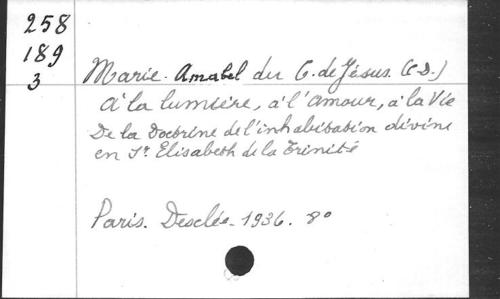 258
189
3
Marie-Amabel du C. de Jésus (C.D.)
A la lumière, à l'amour, à la Vie
De la Doctrine de l'inhabitation divine
en Sr Elisabeth de la Trinité
Paris. Desclée. 1936. 8°